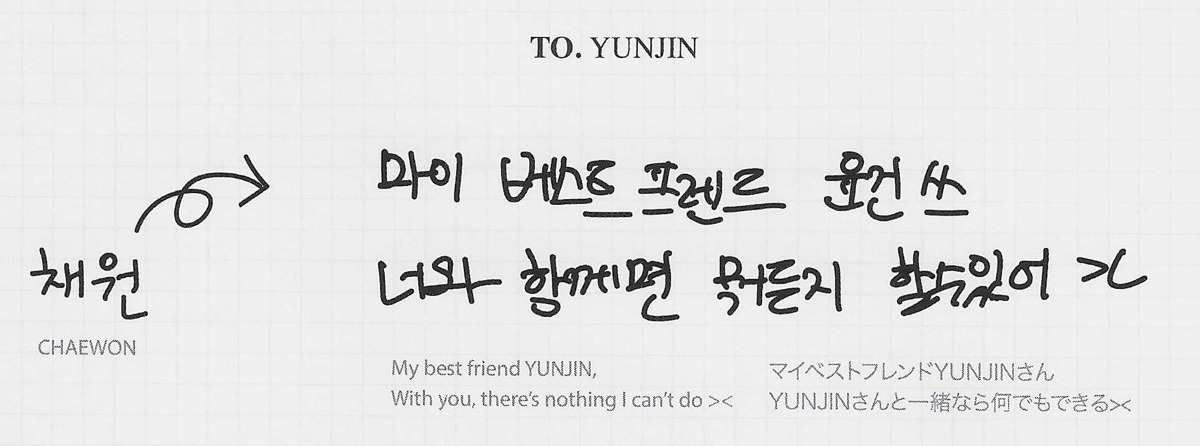 TO. YUNJIN
마이 베스트 프렌드 윤진 쓰
채원
너와 함께면 뭐든지 할수있어 ><
CHAEWON
My best friend YUNJIN,
With you, there's nothing I can't do ><
マイベストフレンドYUNJINさん
YUNJINさんと一緒なら何でもできる><